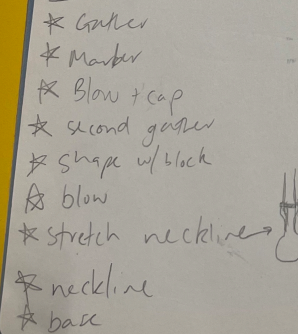 ☆ Gather
☆ Marver
☆ Blow + cap
☆ second gather
☆ shape w/ block
☆ blow
☆ stretch neckline →
☆ neckline
☆ base